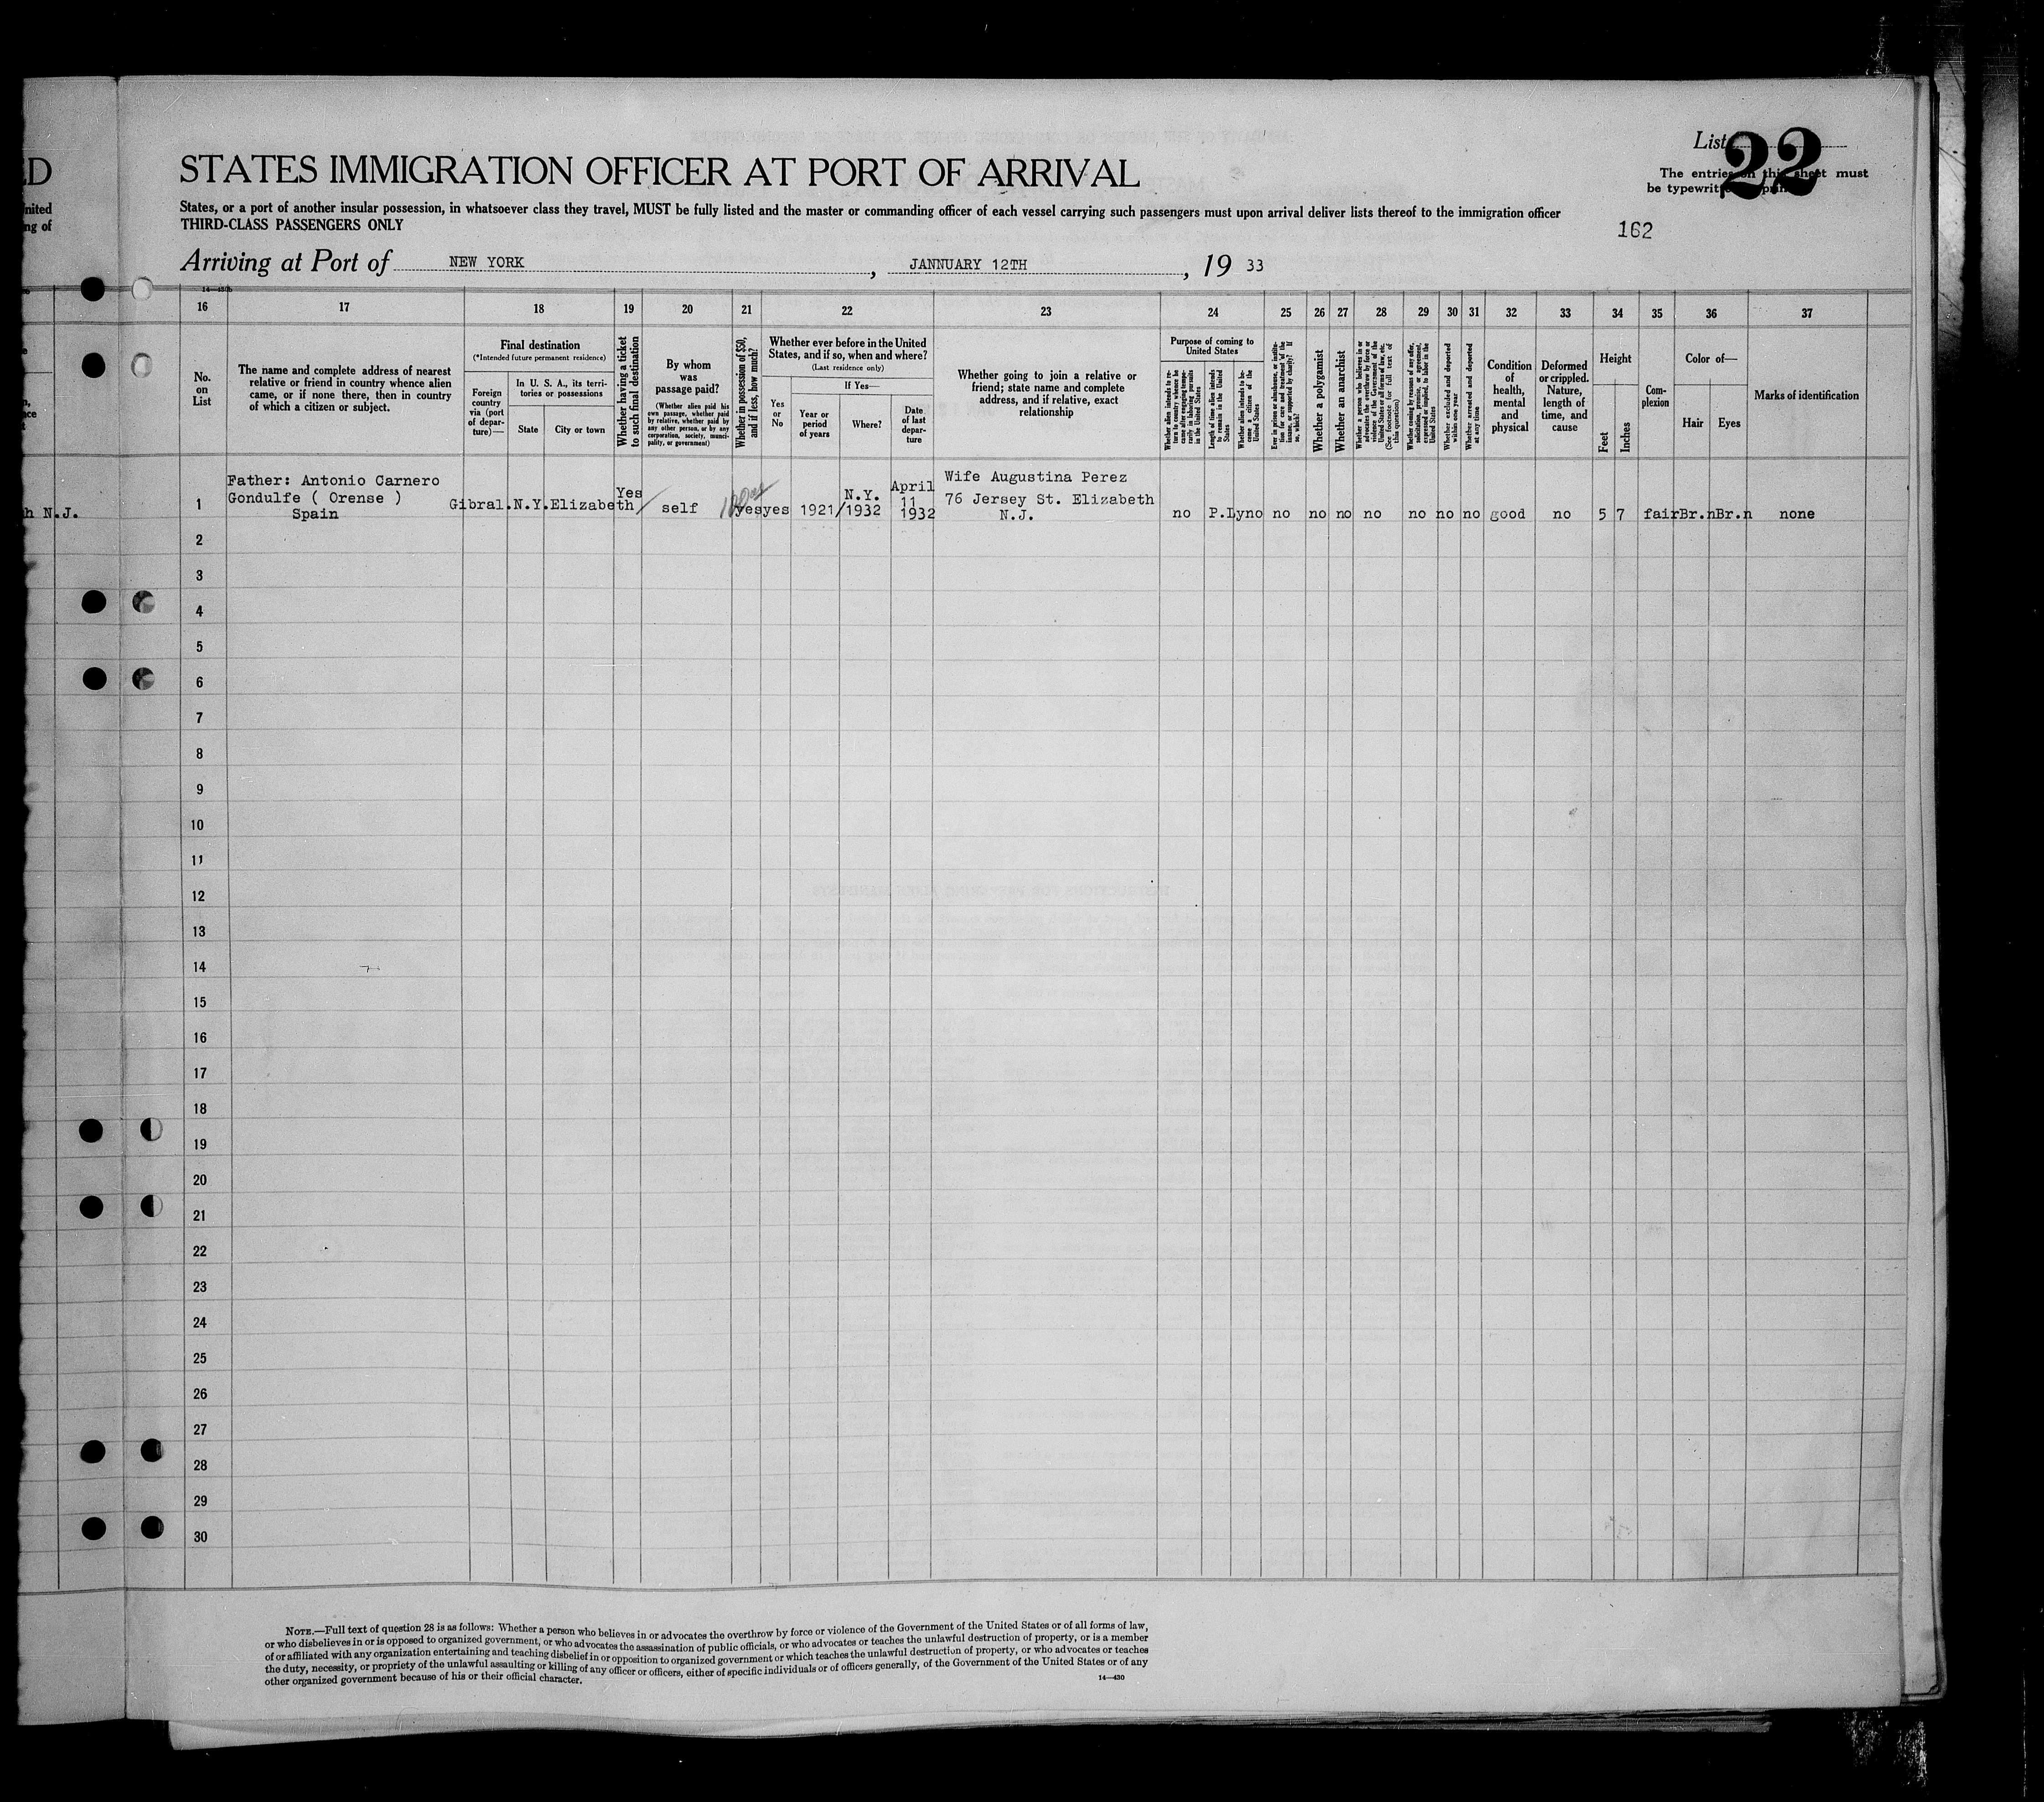 ED
nited
ng of
h N.J.
List 22
The entries on this sheet must
be typewritten or printed
STATES IMMIGRATION OFFICER AT PORT OF ARRIVAL
States, or a port of another insular possession, in whatsoever class they travel, MUST be fully listed and the master or commanding officer of each vessel carrying such passengers must upon arrival deliver lists thereof to the immigration officer
THIRD-CLASS PASSENGERS ONLY
162
Arriving at Port of NEW YORK, JANNUARY 12TH, 19 33
16 17 18 19 20 21 22 23 24 25 26 27 28 29 30 31 32 33 34 35 36 37
No. on List
The name and complete address of nearest
relative or friend in country whence alien
came, or if none there, then in country
of which a citizen or subject.
Final destination
(*Intended future permanent residence)
Foreign
country
via (port
of depar-
ture)—
In U. S. A., its terri-
tories or possessions
State
City or town
Whether having a ticket
to such final destination
By whom
was
passage paid?
(Whether alien paid his
own passage, whether paid
by relative, whether paid by
any other person, or by any
corporation, society, munici-
pality, or government)
Whether in possession of $50,
and if less, how much?
Whether ever before in the United
States, and if so, when and where?
(Last residence only)
Yes
or
No
If Yes—
Year or
period
of years
Where?
Date
of last
depar-
ture
Whether going to join a relative or
friend; state name and complete
address, and if relative, exact
relationship
Purpose of coming to
United States
Whether alien intends to re-
turn to country whence he
came after engaging tempo-
rarily in laboring pursuits
in the United States
Length of time alien intends
to remain in the United
States
Whether alien intends to be-
come a citizen of the
United States
Ever in prison or almshouse, or institu-
tion for care and treatment of the
insane, or supported by charity? If
so, which?
Whether a polygamist
Whether an anarchist
Whether a person who believes in or
advocates the overthrow by force or
violence of the Government of the
United States or all forms of law, etc.
(See footnote for full text of
this question)
Whether coming by reasons of any offer,
solicitation, promise, or agreement,
expressed or implied, to labor in the
United States
Whether excluded and deported
within one year
Whether arrested and deported
at any time
Condition
of
health,
mental
and
physical
Deformed
or crippled.
Nature,
length of
time, and
cause
Height
Feet
Inches
Com-
plexion
Color of—
Hair
Eyes
Marks of identification
1
Father: Antonio Carnero
Gondulfe ( Orense )
Spain
Gibral. N.Y. Elizabeth Yes self yes yes 1921/1932 N.Y. April
11
1932
Wife Augustina Perez
76 Jersey St. Elizabeth
N.J.
no P.Ly no no no no no no no no good no 5 7 fair Br.n Br.n none
2
3
4
5
6
7
8
9
10
11
12
13
14
15
16
17
18
19
20
21
22
23
24
25
26
27
28
29
30
NOTE.—Full text of question 28 is as follows: Whether a person who believes in or advocates the overthrow by force or violence of the Government of the United States or of all forms of law,
or who disbelieves in or is opposed to organized government, or who advocates the assassination of public officials, or who advocates or teaches the unlawful destruction of property, or is a member
of or affiliated with any organization entertaining and teaching disbelief in or opposition to organized government or which teaches the unlawful destruction of property, or who advocates or teaches
the duty, necessity, or propriety of the unlawful assaulting or killing of any officer or officers, either of specific individuals or of officers generally, of the Government of the United States or of any
other organized government because of his or their official character.
14—430